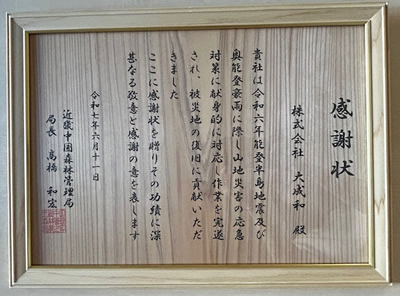 感謝状
株式会社 大成和 殿
貴社は令和六年能登半島地震及び
奥能登豪雨に際し山地災害の応急
対策に献身的に対応し作業を完遂
され、被災地の復旧に貢献いただ
きました
ここに感謝状を贈りその功績に深
甚なる敬意と感謝の意を表します
令和七年六月十一日
近畿中国森林管理局
局長 高橋 和宏